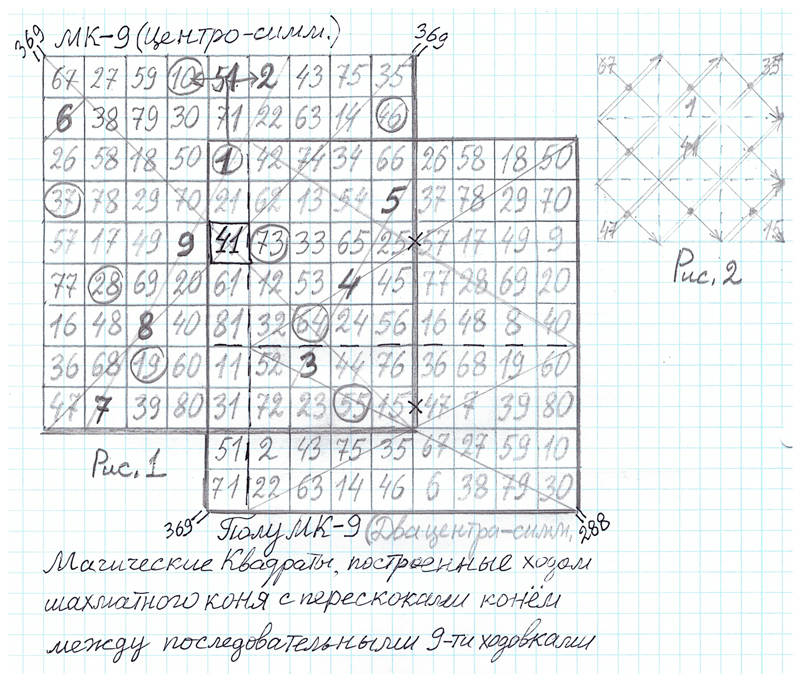 369
МК-9 (Центро-симм.)
369
67 27 59 10 51 2 43 75 35
6 38 79 30 71 22 63 14 46
26 58 18 50 1 42 74 34 66 26 58 18 50
37 78 29 70 21 62 13 54 5 37 78 29 70
57 17 49 9 41 73 33 65 25 57 17 49 9
77 28 69 20 61 12 53 4 45 77 28 69 20
16 48 8 40 81 32 64 24 56 16 48 8 40
36 68 19 60 11 52 3 44 76 36 68 19 60
47 7 39 80 31 72 23 55 15 47 7 39 80
51 2 43 75 35 67 27 59 10
71 22 63 14 46 6 38 79 30
67 35
1
41
47 15
Рис. 2
Рис. 1
369 ПолуМК-9 (Двацентра-симм. 288
Магические Квадраты, построенные ходом
шахматного коня с перескоками конём
между последовательными 9-ти ходовками